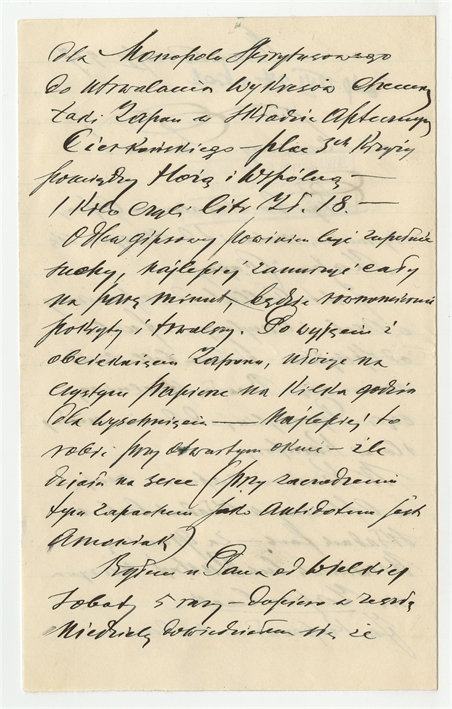 dla Monopolu Spirytusowego
do utrwalania Wykresów chemicz
taki Zapon w Składzie Aptecznym
Cierkońskiego – plac 3ch Krzyży
pomiędzy Hożą i Wspólną –
1 Kilo czyli litr Zł. 18. –
Odlew gipsowy powinien być zupełnie
suchy, najlepiej zanurzyć cały
na parę minut, będzie równomiernie
pokryty i trwalszy. Po wyjęciu i
obcieknięciu Zaponu, ułożyć na
czystym papierze na kilka godzin
dla wyschnięcia — najlepiej to
robić przy otwartym oknie – źle
działa na serce (przy zaczadzeniu
tym zapachem jako Antidotum jest
Amoniak)
Byłem u Pana od Wielkiej
Soboty 5 razy – dopiero w zeszłą
Niedzielę dowiedziałem się że